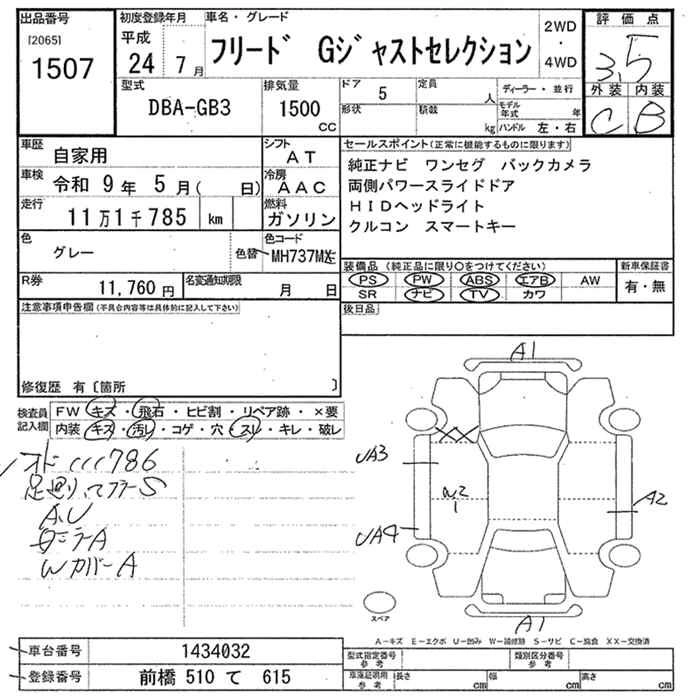 出品番号
[2065]
1507
初度登録年月
平成
24 7 月
車名・グレード
フリード Gジャストセレクション
2WD
・
4WD
評価点
3.5
外装 内装
C B
型式
DBA-GB3
排気量
1500
CC
ドア
5
定員
人
形状
積載
kg
ディーラー・並行
モデル年式
年
ハンドル 左・右
車歴
自家用
シフト
AT
車検
令和 9年 5月( 日)
冷房
AAC
走行
11万1千785 km
燃料
ガソリン
色
グレー
色替
色コード
MH737MX
R券
11,760 円
名変通知期限
月 日
セールスポイント(正常に機能するものに限ります)
純正ナビ ワンセグ バックカメラ
両側パワースライドドア
HIDヘッドライト
クルコン スマートキー
装備品 (純正品に限り○をつけてください)
PS PW ABS エアB AW
SR ナビ TV カワ
新車保証書
有・無
後日品
注意事項申告欄(不具合内容等は具体的に記入して下さい)
修復歴 有〔箇所 〕
検査員
記入欄
FW キズ・飛石・ヒビ割・リペア跡・×要
内装 キズ・汚レ・コゲ・穴・スレ・キレ・破レ
786
A.U
WカバーA
A1
UA3
W2
1
A2
UA4
A1
スペア
A−キズ E−エクボ U−凹み W−補修跡 S−サビ C−腐食 XX−交換済
車台番号
1434032
登録番号
前橋 510 て 615
型式指定番号
参考
類別区分番号
参考
車庫証明用
参考
長さ cm
幅 cm
高さ cm